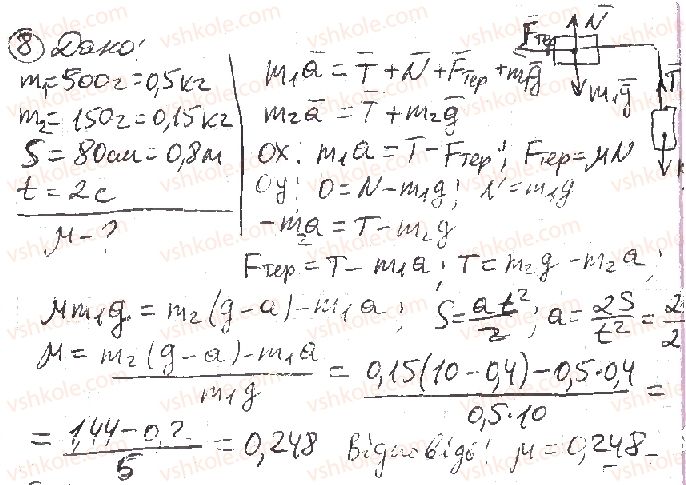 8 Дано:
m₁=500г=0,5кг
m₂=150г=0,15кг
S=80см=0,8м
t=2с
μ-?
m₁a̅ = T̅ + N̅ + F̅тер + m₁g̅
m₂a̅ = T̅ + m₂g̅
ох: m₁a = T̅ - Fтер; Fтер=μN
оу: 0=N-m₁g; N=m₁g
-m₂a = T - m₂g
Fтер = T - m₁a; T = m₂g - m₂a;
μm₁g = m₂(g-a) - m₁a; S = at²/2; a = 2S/t² =
μ = (m₂(g-a) - m₁a)/(m₁g) = (0,15(10-0,4) - 0,5·0,4)/(0,5·10) =
= (1,44-0,2)/5 = 0,248 Відповідь: μ=0,248
F̅тер
N̅
m₁g̅
T̅
vshkole.com